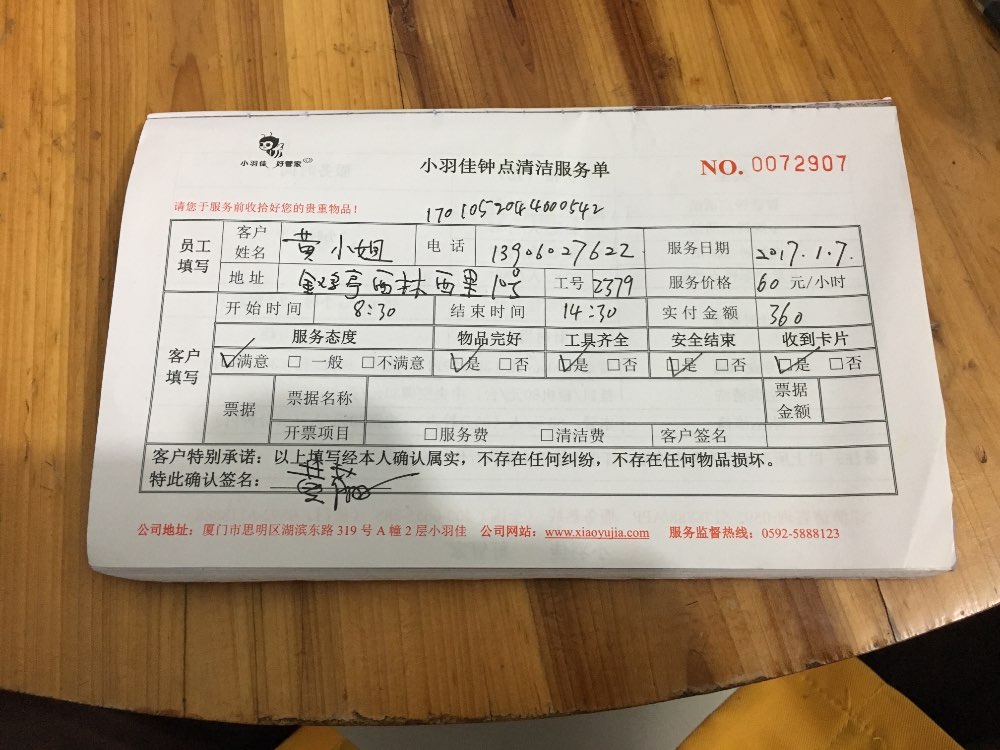 小羽佳 好管家
小羽佳钟点清洁服务单
NO. 0072907
请您于服务前收拾好您的贵重物品!
1701052044000542
员工填写 客户姓名 黄小姐 电话 13906027622 服务日期 2017.1.7.
地址 西林西里 工号 2379 服务价格 60 元/小时
客户填写 开始时间 8:30 结束时间 14:30 实付金额 360
服务态度 物品完好 工具齐全 安全结束 收到卡片
☑满意 □一般 □不满意 ☑是 □否 ☑是 □否 ☑是 □否 ☑是 □否
票据 票据名称 票据金额
开票项目 □服务费 □清洁费 客户签名
客户特别承诺:以上填写经本人确认属实,不存在任何纠纷,不存在任何物品损坏。
特此确认签名:
公司地址:厦门市思明区湖滨东路 319 号 A 幢 2 层小羽佳 公司网站:www.xiaoyujia.com 服务监督热线:0592-5888123